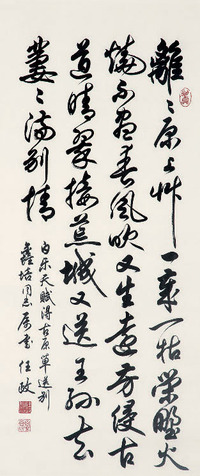 離々原上艸一歲一枯榮野火
燒不盡春風吹又生遠芳侵古
道晴翠接荒城又送王孫去
萋々滿別情
白乐天賦得古原草送别
同志属书 任政